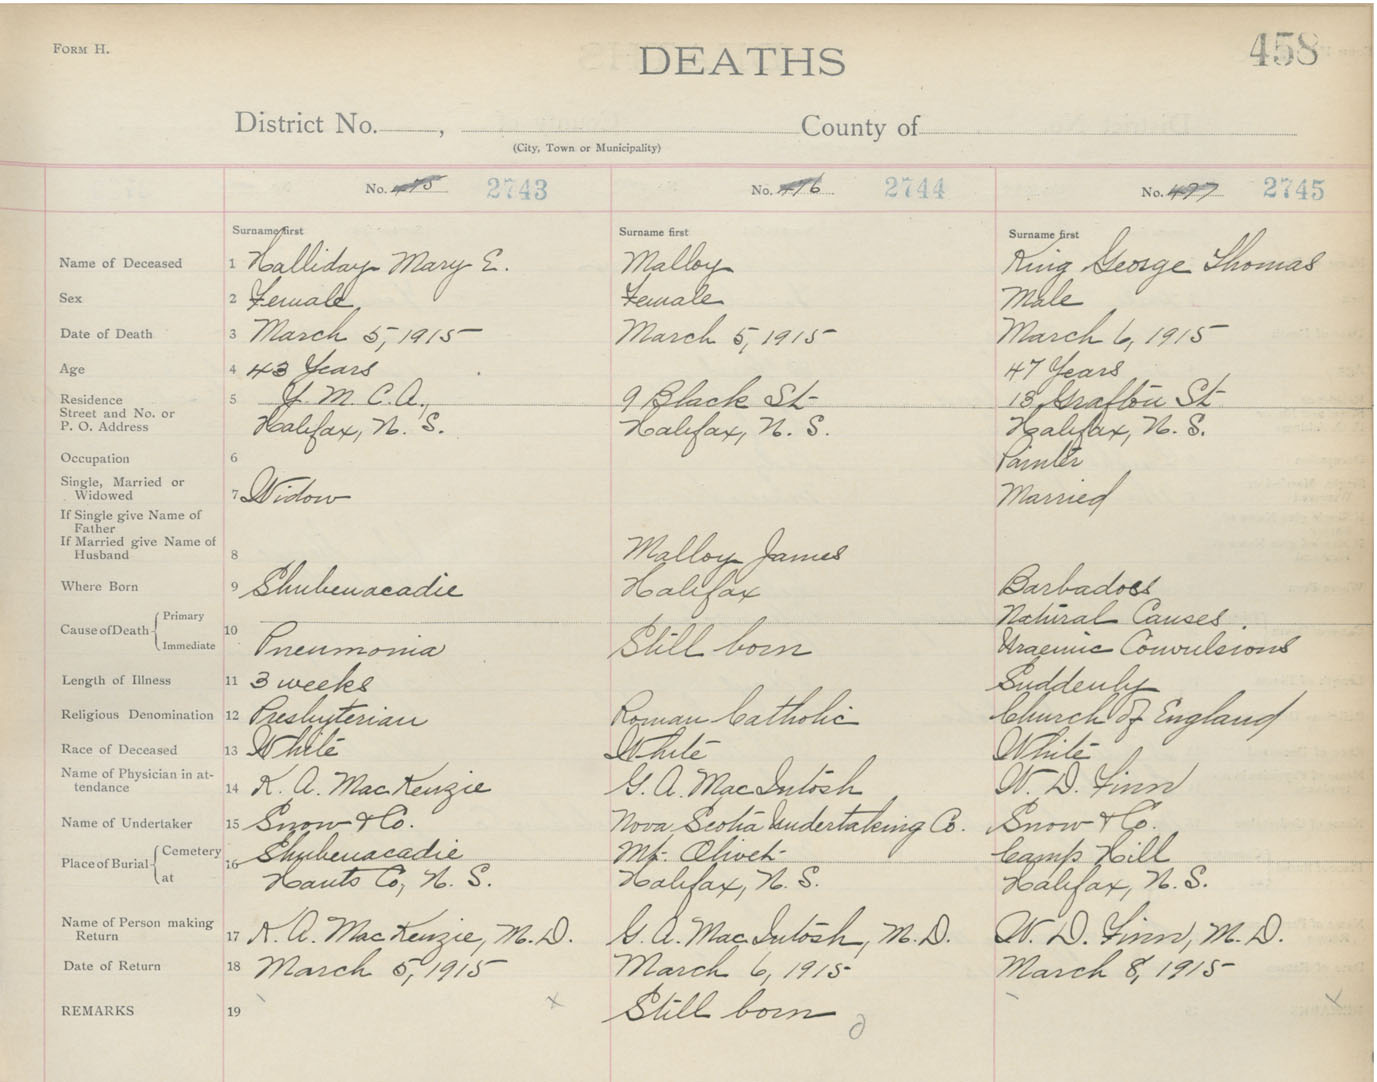 FORM H.
DEATHS
458
District No. , County of
(City, Town or Municipality)
No. 475 2743 No. 476 2744 No. 477 2745
Surname first Surname first Surname first
Name of Deceased 1 Halliday Mary E. Malloy King George Thomas
Sex 2 Female Female Male
Date of Death 3 March 5, 1915 March 5, 1915 March 6, 1915
Age 4 43 Years 47 Years
Residence 5 Y. M. C. A., 9 Black St 13, Grafton St
Street and No. or
P. O. Address Halifax, N. S. Halifax, N. S. Halifax, N. S.
Occupation 6 Painter
Single, Married or
Widowed 7 Widow Married
If Single give Name of
Father
If Married give Name of
Husband 8 Malloy James
Where Born 9 Shubenacadie Halifax Barbadoes
Cause of Death Primary 10 Natural Causes.
Immediate Pneumonia Still born Uraemic Convulsions
Length of Illness 11 3 weeks Suddenly
Religious Denomination 12 Presbyterian Roman Catholic Church of England
Race of Deceased 13 White White White
Name of Physician in at-
tendance 14 K. A. MacKenzie G. A. MacIntosh W. D. Finn
Name of Undertaker 15 Snow & Co. Nova Scotia Undertaking Co. Snow & Co.
Place of Burial Cemetery 16 Shubenacadie Mt. Olivet Camp Hill
at Hants Co, N. S. Halifax, N. S. Halifax, N. S.
Name of Person making
Return 17 K. A. MacKenzie, M.D. G. A. MacIntosh, M.D. W. D. Finn, M.D.
Date of Return 18 March 5, 1915 March 6, 1915 March 8, 1915
REMARKS 19 Still born